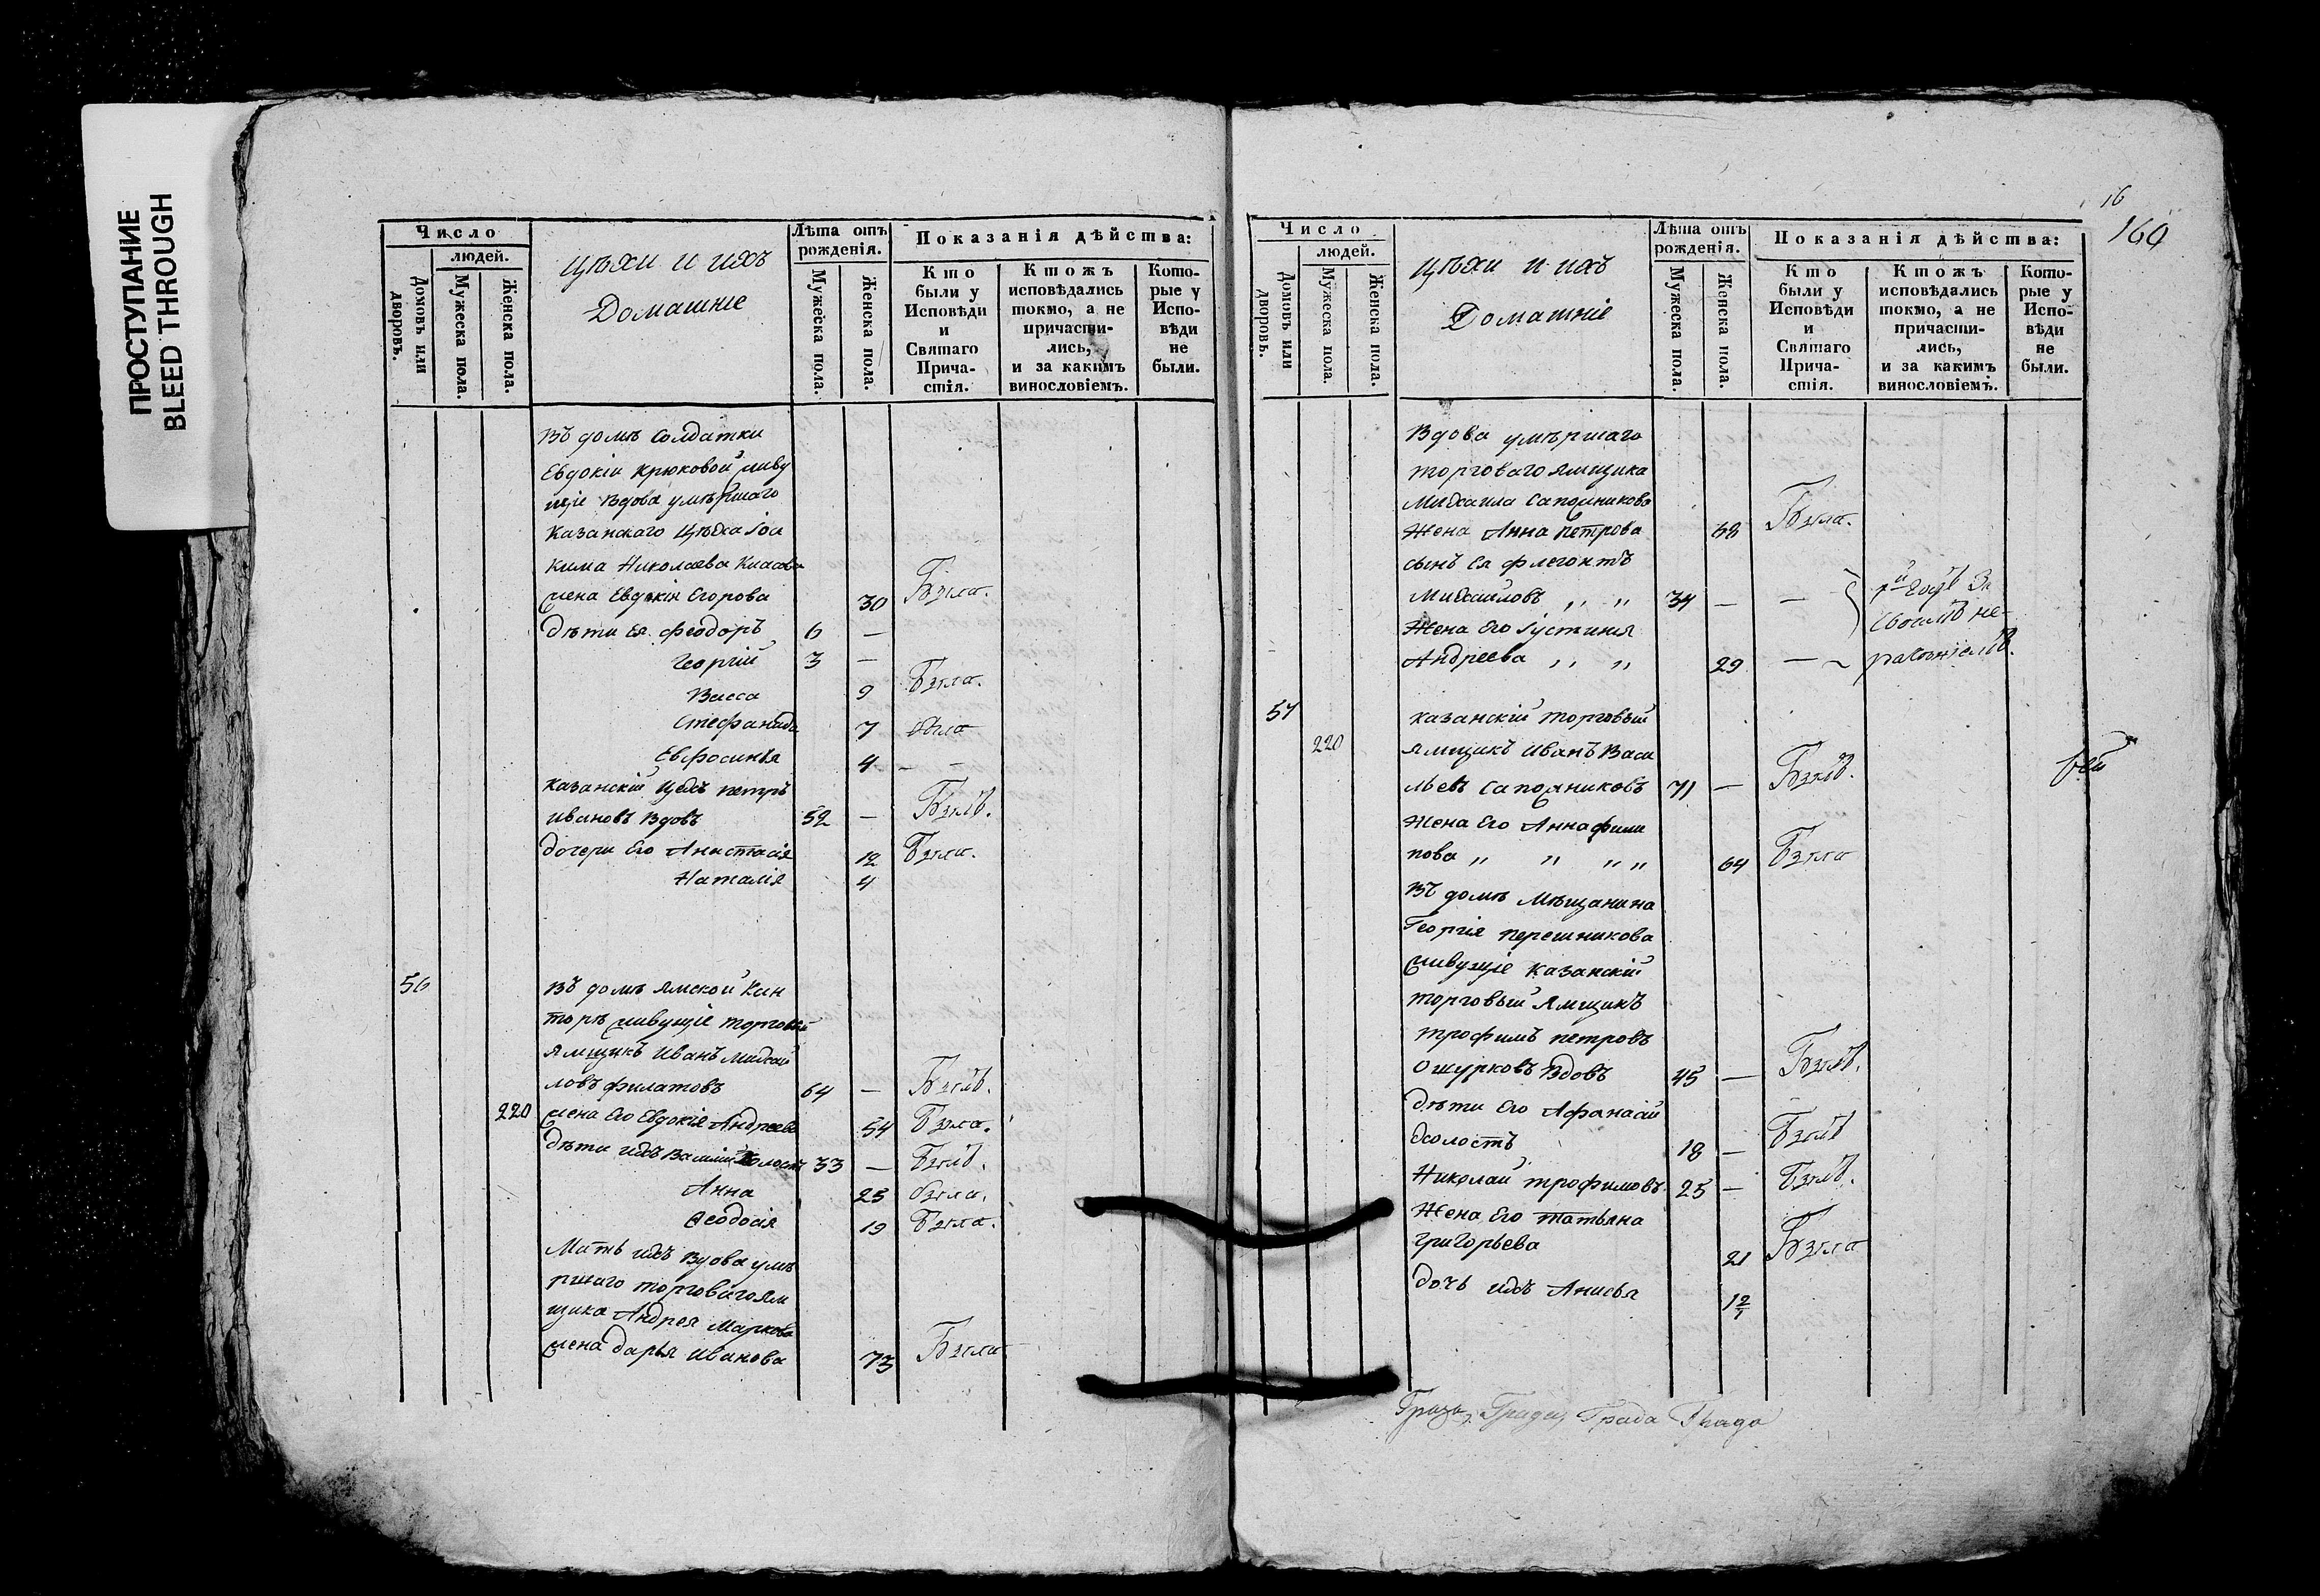 ПРОСТУПАНИЕ
BLEED THROUGH
Число
людей.
Домовъ или дворовъ.
Мужеска пола.
Женска пола.
Цѣхи и ихъ
Домашніе
Лѣта отъ
рожденія.
Мужеска пола.
Женска пола.
Показанія дѣйства:
Кто
были у
Исповѣди
и
Святаго
Прича-
стія.
Ктожъ
исповѣдались
токмо, а не
причасти-
лись,
и за какимъ
винословіемъ.
Кото-
рые у
Испо-
вѣди
не
были.
Въ домѣ Солдатки
Евдокіи Крюковой живу
щіе Вдова умѣршаго
Казанскаго Цѣха Іоа
кима Николаева
жена Евдокія Егорова 30 Была.
Дѣти Ея Феодоръ 6 —
Георгій 3 —
Васса 9 Была.
Стефанида 7 была
Евфосинья 4 — —
Казанскій Цехъ Петръ
Ивановъ Вдовъ 52 — Былъ.
Дочери Его Анастасія 12 Была.
Наталія 4
56 Въ домѣ Ямской Кан
торѣ живущіе торговый
Ямщикъ Иванъ Михай
ловъ Филатовъ 64 — Былъ.
220 жена Его Евдокія Андреева 54 Была.
Дѣти ихъ Василій Холостъ 33 — Былъ.
Анна 25 была.
Феодосія 19 Была.
Мать ихъ Вдова умѣ
ршаго торговаго Ям
щика Андрея Маркова
жена Дарья Иванова 73 Была
16
160
Число
людей.
Домовъ или дворовъ.
Мужеска пола.
Женска пола.
Цѣхи и ихъ
Домашніе
Лѣта отъ
рожденія.
Мужеска пола.
Женска пола.
Показанія дѣйства:
Кто
были у
Исповѣди
и
Святаго
Прича-
стія.
Ктожъ
исповѣдались
токмо, а не
причасти-
лись,
и за какимъ
винословіемъ.
Кото-
рые у
Испо-
вѣди
не
были.
Вдова умѣршаго
торговаго Ямщика
Михаила Сапожникова
Жена Анна Петрова 68 Была.
сынъ Ея Флегонтъ
Михайловъ ,, ,, 34 — —
Жена Его Іустинія
Андреева ,, ,, 29 —
й годъ За
своимъ не-
радѣніемъ.
57 Казанскій торговый
220 Ямщикъ Иванъ Васи
льевъ Сапожниковъ 71 — Былъ.
Жена Его Анна Фили
пова ,, ,, ,, ,, 64 Была
Въ домѣ Мѣщанина
Георгія Перешникова
живущіе Казанскій
торговый Ямщикъ
Трофимъ Петровъ
Ошурковъ Вдовъ 45 — Былъ.
Дѣти Его Афанасій
холостъ 18 — Былъ
Николай Трофимовъ 25 — Былъ.
Жена Его Татьяна
Григорьева 21 Была
дочь ихъ Анисья 1/2
Града Града